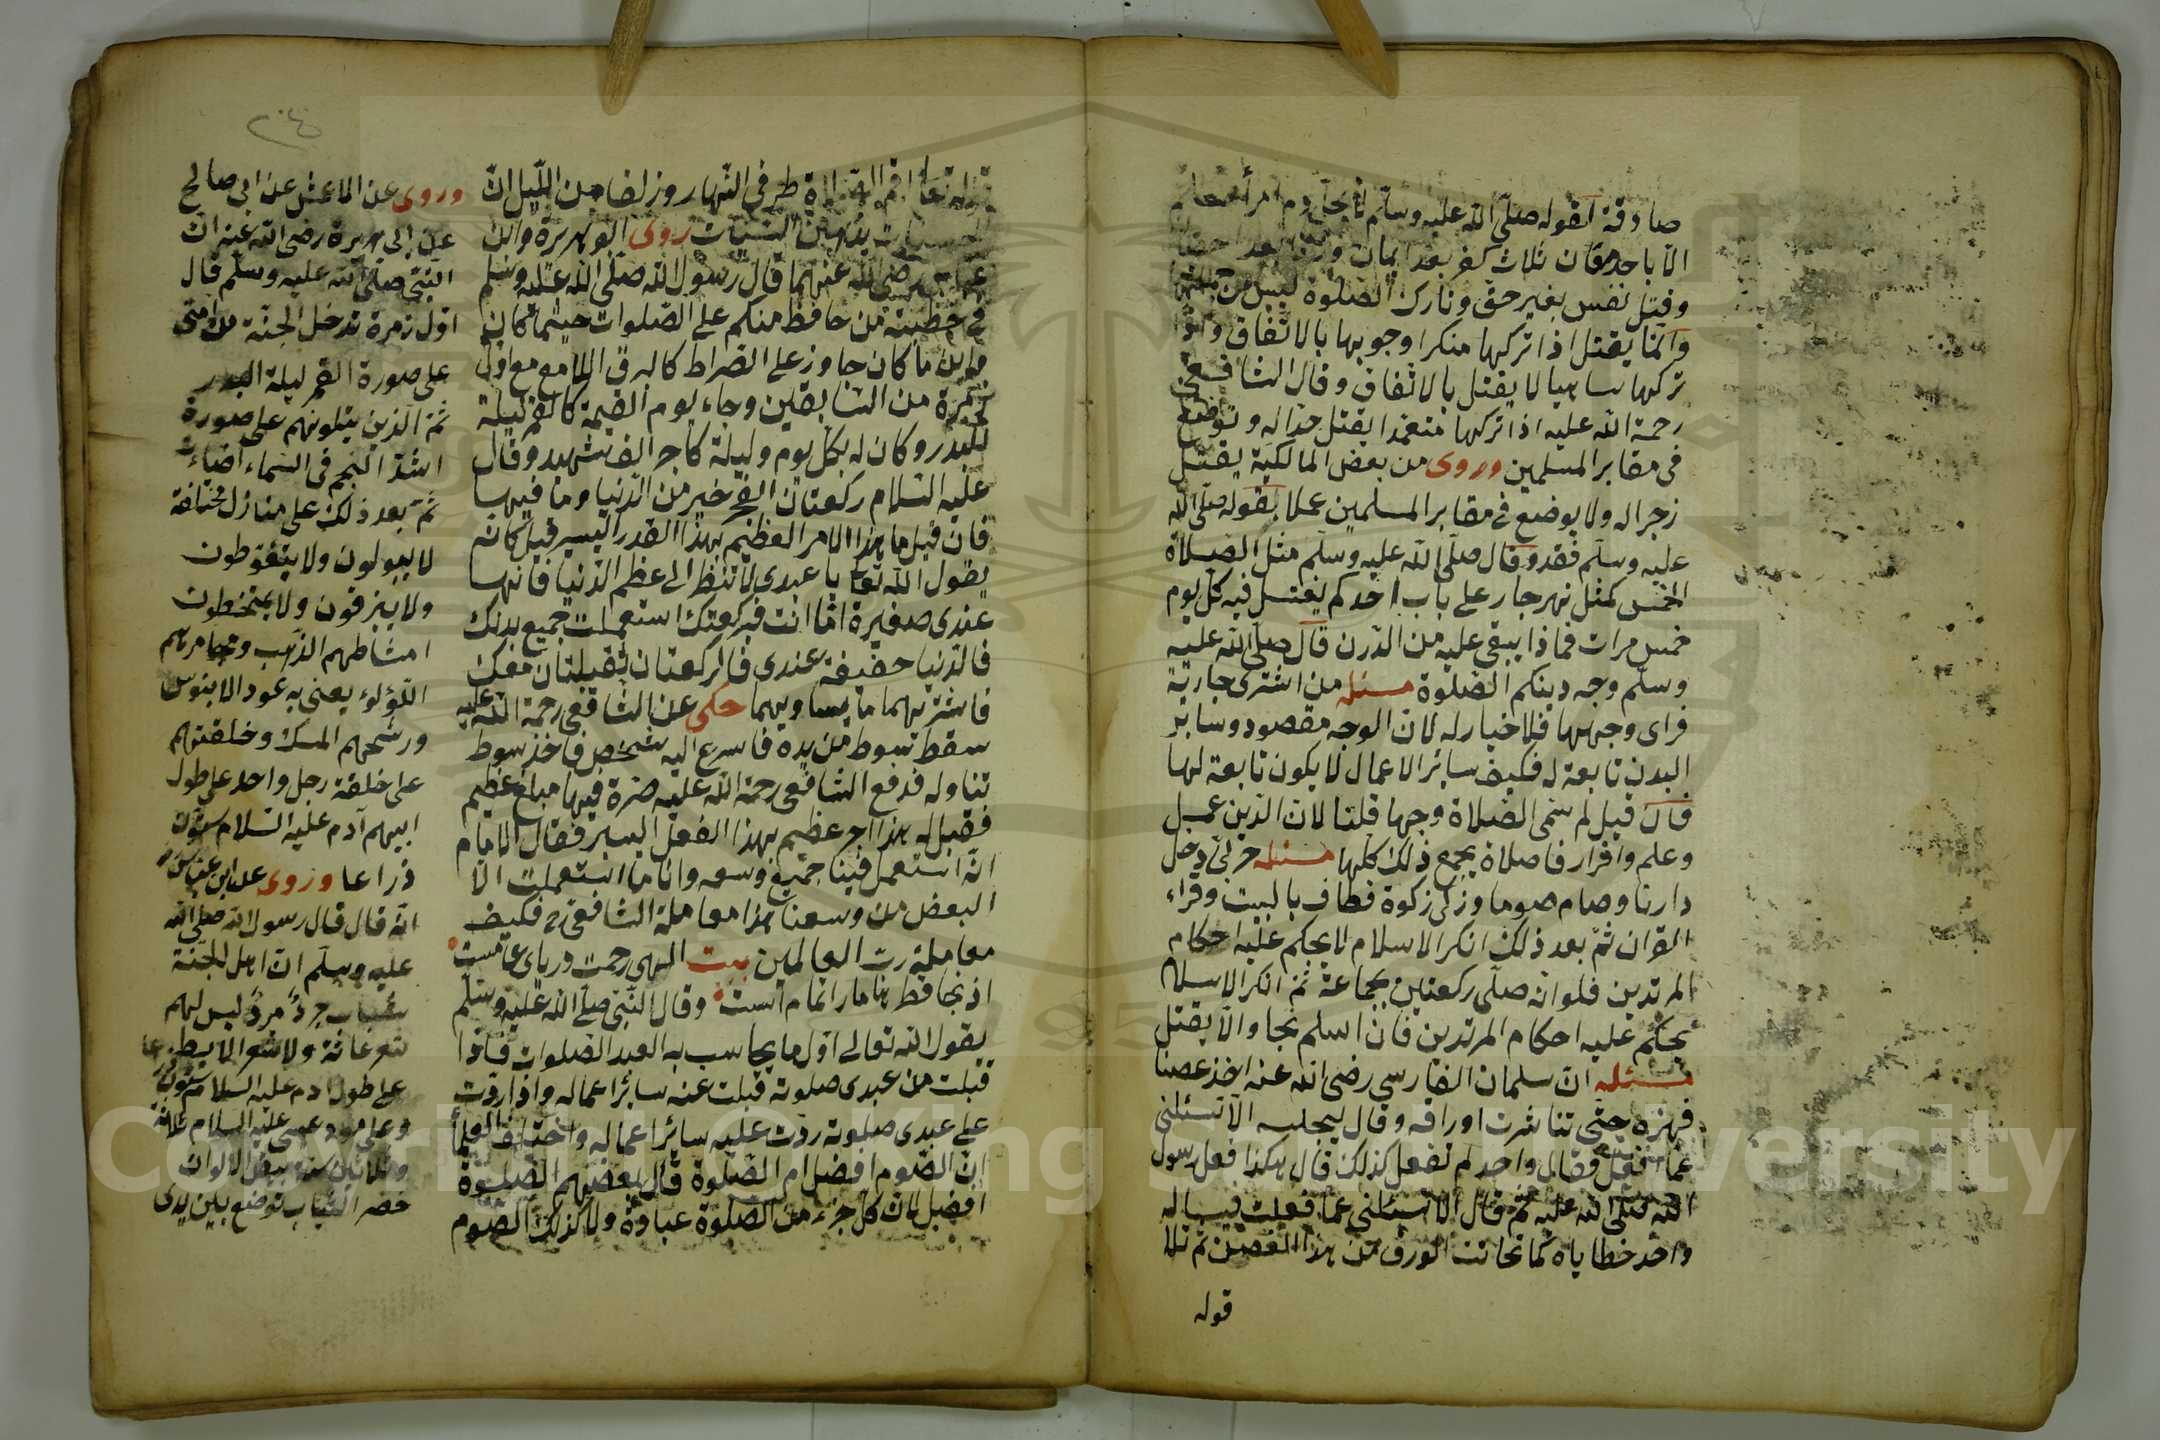 صادقة لقوله صلى الله عليه وسلم لا يحل دم امرأ مسلم
الا باحد معان ثلاث كفر بعد ايمان وزنا بعد احصان
وقتل نفس بغير حق وتارك الصلوة ليس من
وانما يقتل اذا تركها منكرا وجوبها بالاتفاق واذا
تركها ساهيا لا يقتل بالاتفاق وقال الشافعى
رحمة الله عليه اذا تركها متعمدا يقتل حدا له ويوضع
فى مقابر المسلمين وروى من بعض المالكية يقتل
زجرا له ولا يوضع فى مقابر المسلمين عملا بقوله صلى الله
عليه وسلم فقد وقال صلى الله عليه وسلم مثل الصلاة
الخمس كمثل نهر جار على باب احدكم يغتسل فيه كل يوم
خمس مرات فماذا يبقى عليه من الدرن قال صلى الله عليه
وسلم وجه دينكم الصلوة مسئله من اشترى جارية
فراى وجهها فلا خيار له لان الوجه مقصود وسائر
البدن تابعة له فكيف سائر الاعمال لا يكون تابعة لها
فان قيل لم سمى الصلاة وجها قلنا لان الدين عمل
وعلم واقرار فاصلاة يجمع ذلك كلها مسئله حربى دخل
دارنا وصام صوما وزكى زكوة فطاف بالبيت وقراء
القران ثم بعد ذلك انكر الاسلام لا يحكم عليه احكام
المرتدين فلو انه صلى ركعتين بجماعة ثم انكر الاسلام
يحكم عليه احكام المرتدين فان اسلم نجا والا يقتل
مسئله ان سلمان الفارسى رضى الله عنه اخذ عصنا
فهزه حتى تناشرت اوراقه وقال لجليسه الا تسئلنى
عما افعل فقال واحد لم تفعل كذلك قال هكذا فعل رسول
الله صلى الله عليه ثم قال الا تسئلنى عما فعلت
واحد خطاياه كما تحاتت الورق من هذا الغصن ثم تلا
قوله
٢٠٤
قوله تعا اقم الصلاة طرفى النهار وزلفا من الليل ان
الحسنات يذهبن السيئات روى ابو هريرة وابن
عباس رضى الله عنهما قال رسول الله صلى الله عليه وسلم
فى خطبته من حافظ منكم على الصلوات حيثما كان
واين ما كان جاوز على الصراط كالبرق اللامع مع اول
زمرة من السابقين وجاء يوم القيمة كالقمر ليلة
البدر وكان له بكل يوم وليلة كاجر الف شهيد وقال
عليه السلام ركعتان الفجر خير من الدنيا وما فيها
فان قيل ما هذا الامر العظيم بهذا القدر اليسير قيل كانه
يقول الله تعا يا عبدى لا تنظر الى عظم الدنيا فانها
عندى صغيرة اما انت فبركعتك استعملت جميع بدنك
فالدنيا خفيفة عندى فالركعتان ثقيلتان معك
فاشتريهما ما يساويهما حكى عن الشافعى رحمة الله عليه
سقط سوط من يده فاسرع اليه شخص فاخذ سوط
تناوله فدفع الشافعى رحمة الله عليه صرة فيها مبلغ عظيم
فقيل له هذا اجر عظيم بهذا الفعل اليسير فقال الامام
انه استعمل فينا جميع وسعه وانا ما استعملت الا
البعض من وسعنا هذا معاملة الشافعى فكيف
معاملة رب العالمين بيت الهى رحمت درياى عامست
از نجا قطرۀ مارا تمام است وقال النبى صلى الله عليه وسلم
يقول الله تعالى اول ما يحاسب به العبد الصلوات فاذا
قبلت من عبدى صلوته قبلت عنه سائر اعماله واذا ردت
على عبدى صلوته ردت عليه سائر اعماله واختلف العلماء
ان الصوم افضل ام الصلوة قال بعضهم الصلوة
افضل لان كل جزء من الصلوة عبادة ولا كذلك الصوم
وروى عن الاعمش عن ابى صالح
عن ابى هريرة رضى الله عنه ان
النبى صلى الله عليه وسلم قال
اول زمرة تدخل الجنة من امتى
على صورة القمر ليلة البدر
ثم الذين يتلونهم على صورة
اشد النجم فى السماء اضاءت
ثم بعد ذلك على منازل مختلفة
لا يبولون ولا يتغوطون
ولا يبزقون ولا يمتخطون
امشاطهم الذهب ومجامرهم
اللؤلؤ يعنى به عود الابنوس
ورشحهم المسك وخلقتهم
على خلقة رجل واحد على طول
ابيهم آدم عليه السلام ستون
ذراعا وروى عن ابن عباس
انه قال قال رسول الله صلى الله
عليه وسلم ان اهل الجنة
شباب جرد مرد ليس لهم
شعر عانة ولا شعر الابط
على طول ادم عليه السلام ستون ذراعا
وعلى مولد عيسى عليه السلام ثلاثة
وثلاثين سنة بيض الالوان
خضر الثياب توضع بين يدى